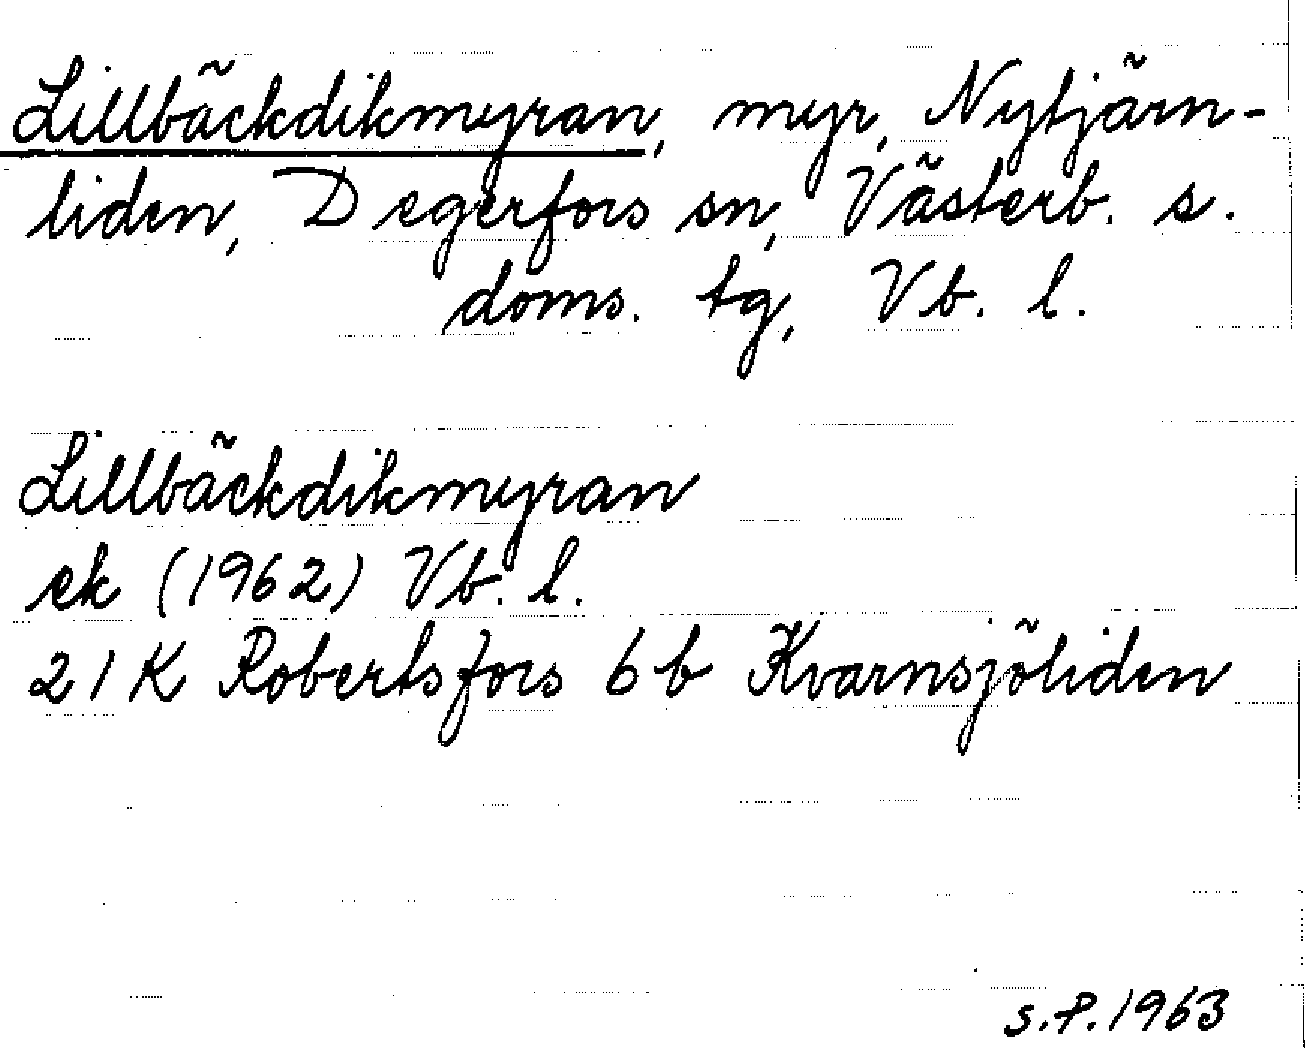 Lillbäckdikmyran, myr, Nytjärn-
liden, Degerfors sn, Västerb. s.
doms. tg, Vb. l.
Lillbäckdikmyran
ek (1962) Vb. l.
21 K Robertsfors 6 b Kvarnsjöliden
S.P. 1963